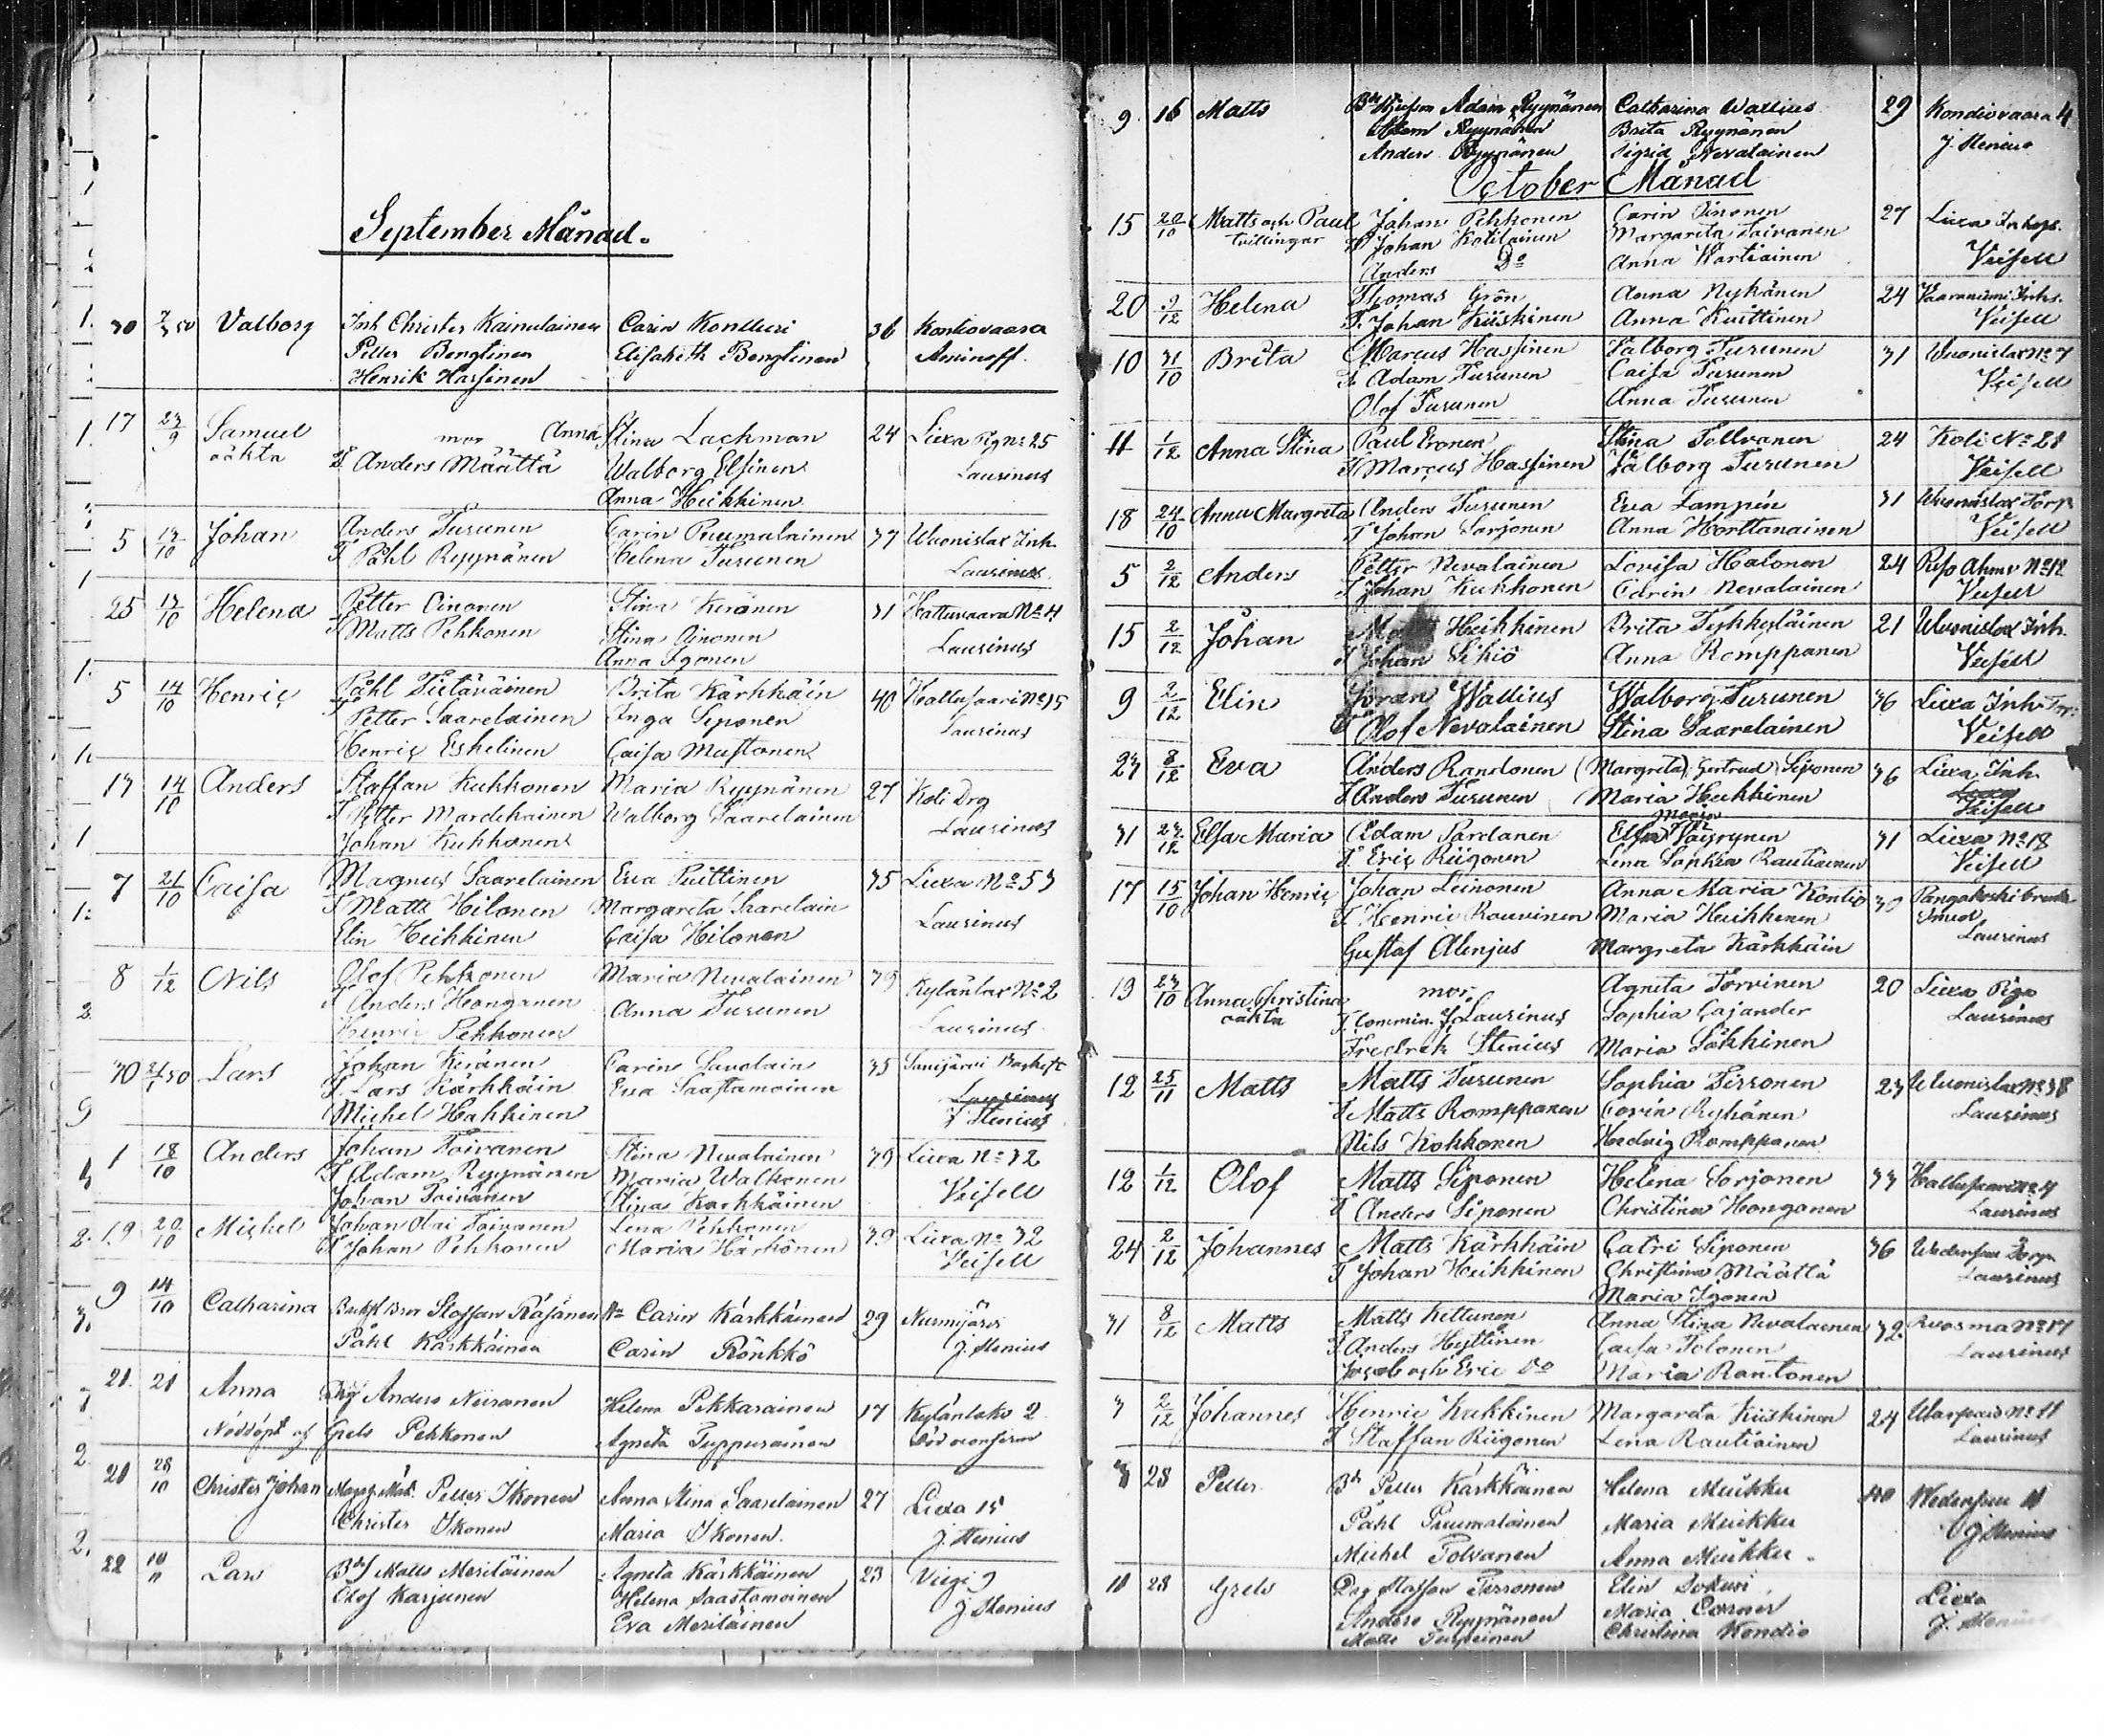 September Månad.
30 7/3 50 Valborg Inh Christer Kainulainen Carin Kontturi 36 Kontiovaara
Petter Bengtinen Elisabeth Bengtinen Aminoff.
Henrik Hassinen
17 23/9 Samuel mor Anna Stina Lackman 24 Liexa Pig No 25
oäkta F. Anders Määttä Walborg Elsinen Laurinus
Anna Heikkinen
5 13/10 Johan Anders Turunen Carin Puumalainen 37 Wuonislax Inh.
F Påhl Ryynänen Helena Turunen Laurinus
25 13/10 Helena Petter Oinonen Stina Keränen 31 Hattuvaara No 4
F Matts Pehkonen Stina Oinonen Laurinus
Anna Igonen
5 14/10 Henric Påhl Sietäväinen Brita Kärkkäin 40 Hallusaari No 15
F Petter Saarelainen Inga Siponen Laurinus
Henric Eskelinen Caisa Mustonen
13 14/10 Anders Staffan Kukkonen Maria Ryynänen 27 Koli Drg
F Petter Mardikainen Walborg Saarelainen Laurinus
Johan Kukkonen
7 21/10 Caisa Magnus Saarelainen Eva Puittinen 35 Liexa No 53
F Matts Hilonen Margareta Saarelain Laurinus
Elin Heikkinen Caisa Hilonen
8 1/12 Nils Olof Pehkonen Maria Nevalainen 39 Kylänlax No 2
F Anders Honganen Anna Turunen Laurinus
Henric Pehkonen
30 Lars Johan Keränen Carin Savolain 35 Savijärvi
F Lars Kärkkäin Eva Saastamoinen Laurinus
Michel Hakkinen J Stenius
1 18/10 Anders Johan Toivanen Stina Nevalainen 39 Liexa No 32
F Adam Ryynänen Maria Walkonen Veisell
Johan Toivanen Stina Karkkäinen
19 20/10 Michel Johan Olai Toivanen Lena Pehkonen 39 Liexa No 32
F Johan Pehkonen Maria Härkönen Veisell
9 14/10 Catharina Staffan Räsänen Carin Kärkkäinen 29 Nurmijärvi
Påhl Kärkkäinen Carin Rönkkö J. Stenius
21 21 Anna Drg Anders Niiranen Helena Pekkarainen 17 Kylänlaks 2
Nöddöpt af Grels Pehkonen Agneta Tuppurainen
21 28/10 Christer Johan Petter Ikonen Anna Stina Saarelainen 27 Liexa 15
Christer Ikonen Maria Ikonen. J. Stenius
22 10/11 Lars Bds Matts Meriläinen Agneta Kärkkäinen 23 Viegi 9
Olof Karjunen Helena Saastamoinen J Stenius
Eva Meriläinen
9 16 Matts Adam Ryynänen Catharina Wallius 29 Kondiovaara 4
Adam Ryynänen Brita Ryynänen J. Stenius
Anders Ryynänen Sigrid Nevalainen
October Månad
15 20/10 Matts och Paul Johan Pehkonen Carin Oinonen 27 Liexa Inhys.
tvillingar F Johan Kotilainen Margareta Toivanen Veisell
Anders Do Anna Wartiainen
20 9/12 Helena Thomas Grön Anna Nykänen 24 Vaaraniemi Inhs.
F. Johan Kiiskinen Anna Kuittinen Veisell
10 31/10 Brita Marcus Hassinen Valborg Turunen 31 Wuonislax No 7
F. Adam Turunen Caisa Turunen Veisell
Olof Turunen Anna Turunen
11 1/12 Anna Stina Paul Eronen Stina Tollvanen 24 Koli No 21
F Marcus Hassinen Valborg Turunen Veisell
18 24/10 Anna Margreta Anders Turunen Eva Lampén 31 Wuonislax Torp
F Johan Sarjonen Anna Horttanainen Veisell
5 2/12 Anders Petter Nevalainen Lovisa Halonen 24 No 12
F Johan Kukkonen Carin Nevalainen Veisell
15 2/12 Johan Heikkinen Brita Tykkyläinen 21 Wuonislax Inh.
F Johan Sikiö Anna Romppanen Veisell
9 2/12 Elin Göran Wallius Walborg Turunen 36 Liexa Inh
F Olof Nevalainen Stina Saarelainen Veisell
23 8/12 Eva Anders Randonen (Margreta) Gertrud Siponen 36 Liexa Inh.
F Anders Turunen Maria Heikkinen Veisell
31 23/12 Elsa Maria Adam Pardanen Elsa Maria Väyrynen 31 Liexa No 18
F Eric Riigonen Lena Sophia Rautiainen Veisell
17 15/10 Johan Henric Johan Leinonen Anna Maria Kontio 30 Pangakoski bruk
F Henric Rouvinen Maria Heikkinen Smed
Gustaf Alenjus Margreta Kärkkäin Laurinus
19 23/10 Anna Christina mor. Agneta Torvinen 20 Liexa Piga
oäkta F. Commin. J. Laurinus Sophia Cajander Laurinus
Fredrek Stenius Maria Sökkinen
12 25/11 Matts Matts Turunen Sophia Tirronen 23 Wuonislax No 38
F Matts Romppanen Carin Ryhänen Laurinus
Nils Kokkonen Hedvig Romppanen
12 1/12 Olof Matts Siponen Helena Sorjonen 33 Hallusaari No 4
F Anders Siponen Christina Honganen Laurinus
24 2/12 Johannes Matts Kärkkäin Catri Siponen 36 Torp
F Johan Heikkinen Christina Määttä Laurinus
Maria Igonen
31 8/12 Matts Matts Kettunen Anna Stina Nevalainen 32 Ruosma No 17
F. Anders Hyttinen Caisa Tolonen Laurinus
Jacob och Eric Do Maria Rantonen
3 2/12 Johannes Henric Kukkinen Margareta Kiiskinen 24 No 11
F Staffan Riigonen Lena Rautiainen Laurinus
28 Petter Bds Petter Kärkkäinen Helena Muikku Wedensuu 11
Påhl Puumalainen Maria Muikku J Stenius
Michel Tolvanen Anna Muikku.
11 28 Grels Drg Staffan Tirronen Elin Sokuri Liexa
Anders Ryynänen Maria Corner J. Stenius
Matts Turpeinen Christina Kondio